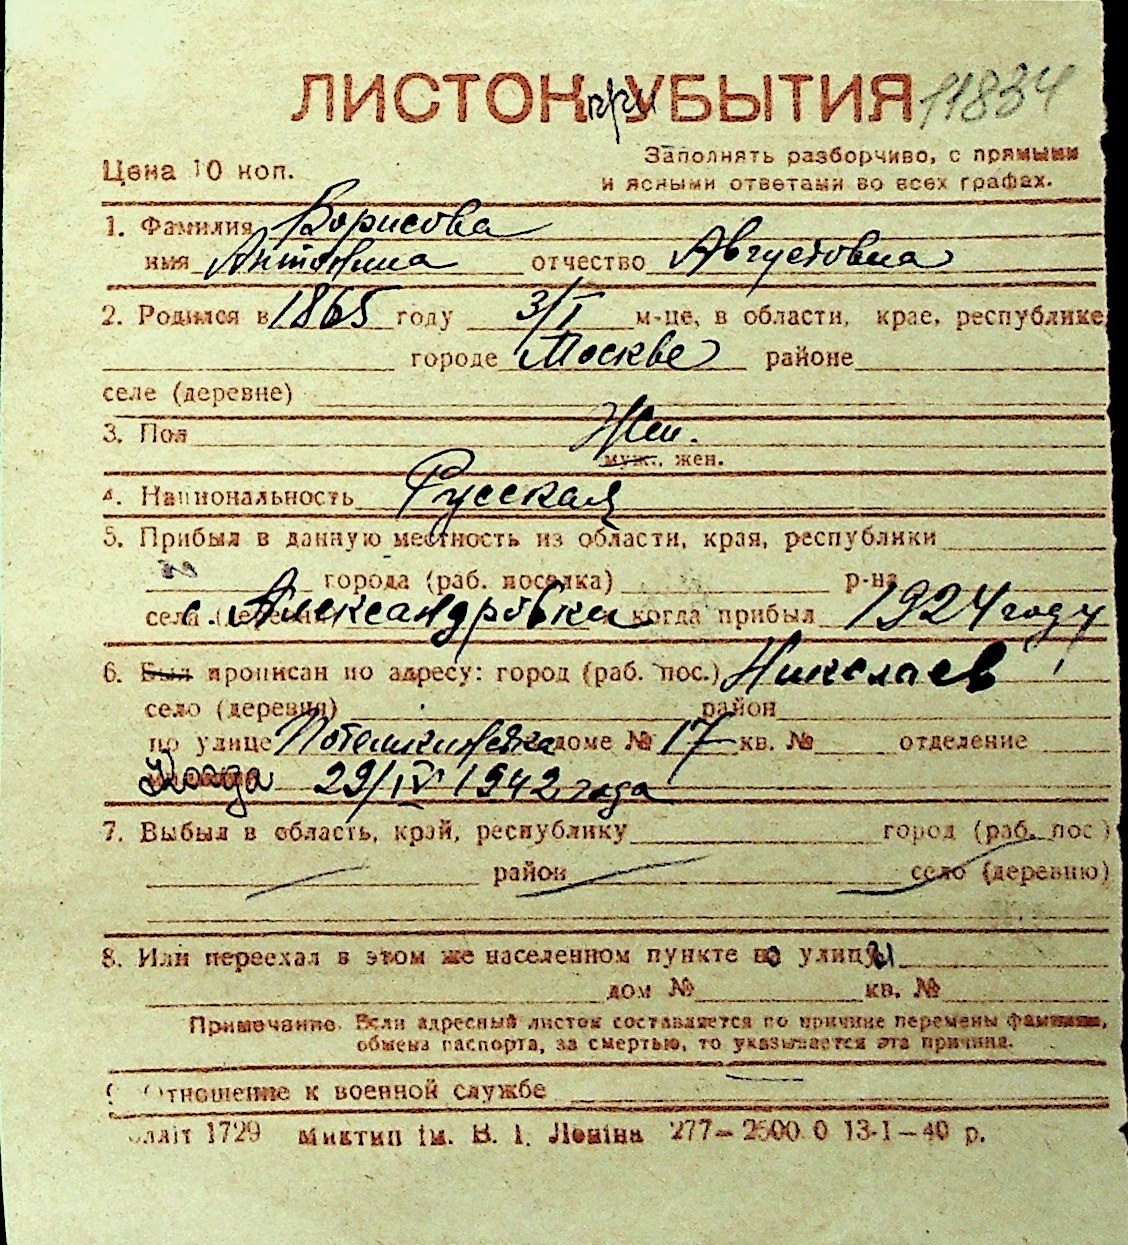 ЛИСТОК при УБЫТИЯ 11834
Цена 10 коп.
Заполнять разборчиво, с прямыми
и ясными ответами во всех графах.
1. Фамилия Борисова
имя Антонина отчество Августовна
2. Родился в 1865 году 3/I м-це, в области, крае, республике
городе Москве районе
селе (деревне)
3. Пол Жен.
муж., жен.
4. Национальность Русская
5. Прибыл в данную местность из области, края, республики
города (раб. поселка) р-на
села с. Александровка когда прибыл 1924 году
6. Был прописан по адресу: город (раб. пос.) Николаев
село (деревня) район
по улице Потемкинская доме № 17 кв. № отделение
Когда 29/IV 1942 года
7. Выбыл в область, край, республику город (раб. пос.)
район село (деревню)
8. Или переехал в этом же населенном пункте на улицы
дом № кв. №
Примечание. Если адресный листок составляется по причине перемены фамилии,
обмена паспорта, за смертью, то указывается эта причина.
9. Отношение к военной службе
1729 Миктип ім. В. І. Леніна 277—2500.0 13-I—40 р.